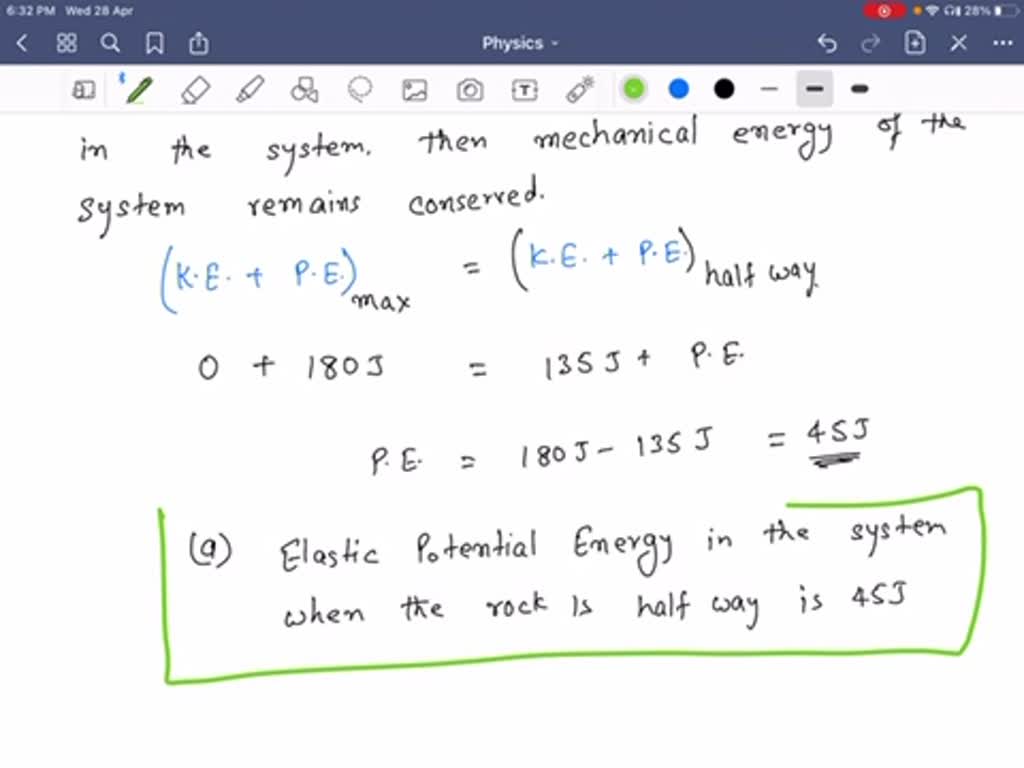 6:32 PM Wed 28 Apr 28%
Physics
T
in the system. then mechanical energy of the
system remains conserved.
(K.E. + P.E.)max = (K.E. + P.E.)half way.
0 + 180J = 135J + P.E.
P.E. = 180J - 135J = 45J
(a) Elastic Potential Energy in the system
when the rock is half way is 45J